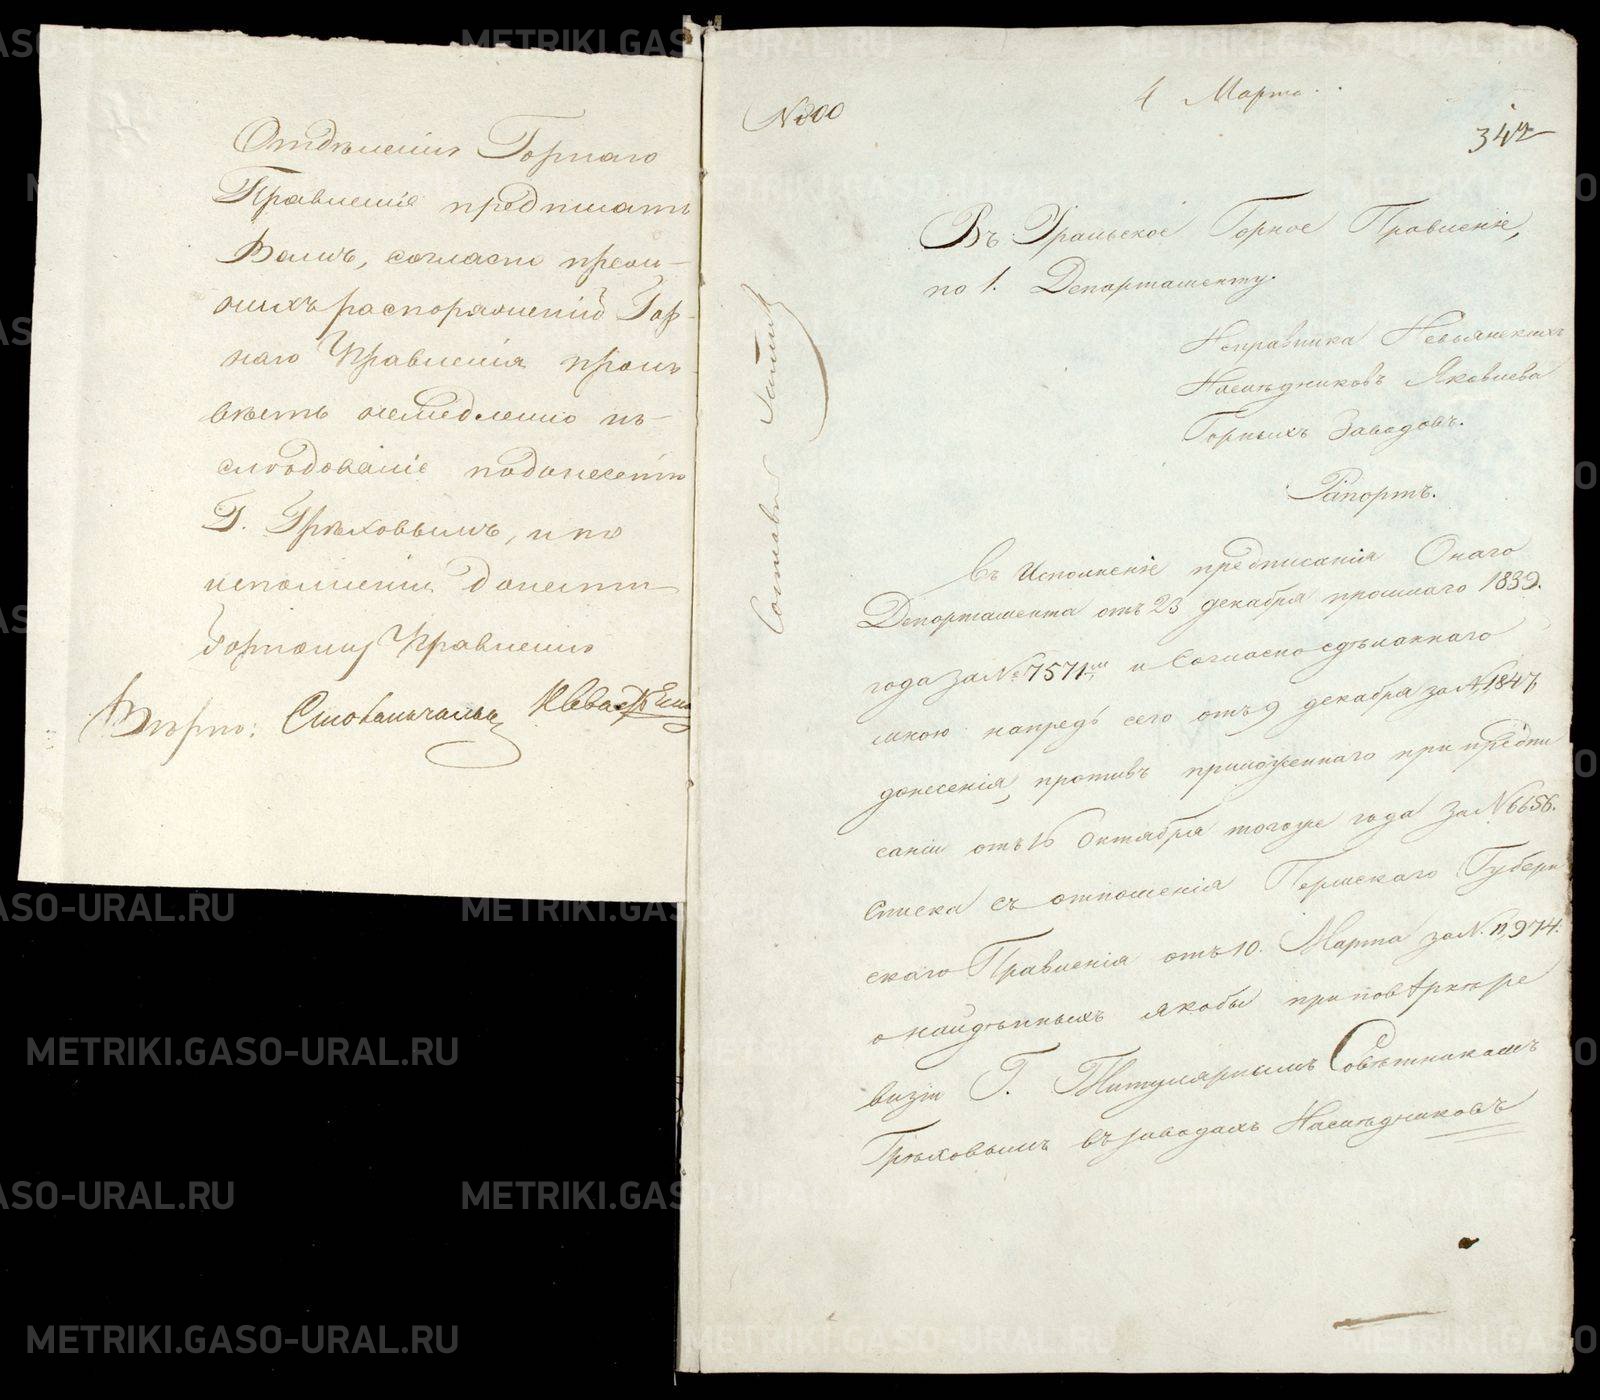 Отдѣленiи Горнаго
Правленiя предписать
Вамъ, согласно преж-
нихъ распоряженiй Гор-
наго Правленiя произ-
весть немедленно из-
слѣдованiе
Г. Грѣховымъ, и по
исполненiи донести
Горному Правленiю
Вѣрно: Столоначальн
4 Марта
342
Въ Уральское Горное Правленiе,
по 1. Департаменту.
Исправника Невьянскихъ
Наслѣдниковъ Яковлева
Горныхъ Заводовъ.
Рапортъ.
Въ Исполненiе предписанiя Онаго
Департамента отъ 23 декабря прошлаго 1839.
года за № 7571мъ и Согласно сдѣланнаго
мною напредь сего отъ 9 декабря за № 1847
донесенiя, противъ приложеннаго при предпи
санiи отъ 16 Октября того же года за № 6656.
Списка съ отношенiя Пермскаго Губерн
скаго Правленiя отъ 10. Марта за №. 11,974.
о найдѣнныхъ якобы при повѣркѣ ре
визiи Г. Титулярнымъ Совѣтникомъ
Грѣховымъ въ заводахъ Наслѣдниковъ
METRIKI.GASO-URAL.RU